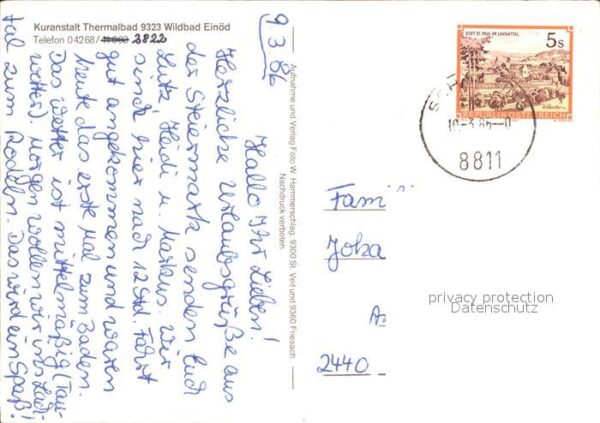 Kuranstalt Thermalbad 9323 Wildbad Einöd
Telefon 04268/ 2822
9.3.86
Hallo Ihr Lieben!
Herzliche Urlaubsgrüße aus
der Steiermark senden Euch
Lutz, Hedi u. Markus. Wir
sind hier nach 12 Std. Fahrt
gut angekommen und waren
heute das erste Mal zum Baden.
Das Wetter ist mittelmäßig (Tau-
wetter), morgen wollen wir ins
tal zum Rodeln. Das wird ein Spaß!
Aufnahme und Verlag Foto W. Hammerschlag, 9300 St. Veit und 9360 Friesach
Nachdruck verboten
STIFT ST. PAUL IM LAVANTTAL
5s
REPUBLIK ÖSTERREICH
8811
Fami
Joha
A
2440
privacy protection
Datenschutz